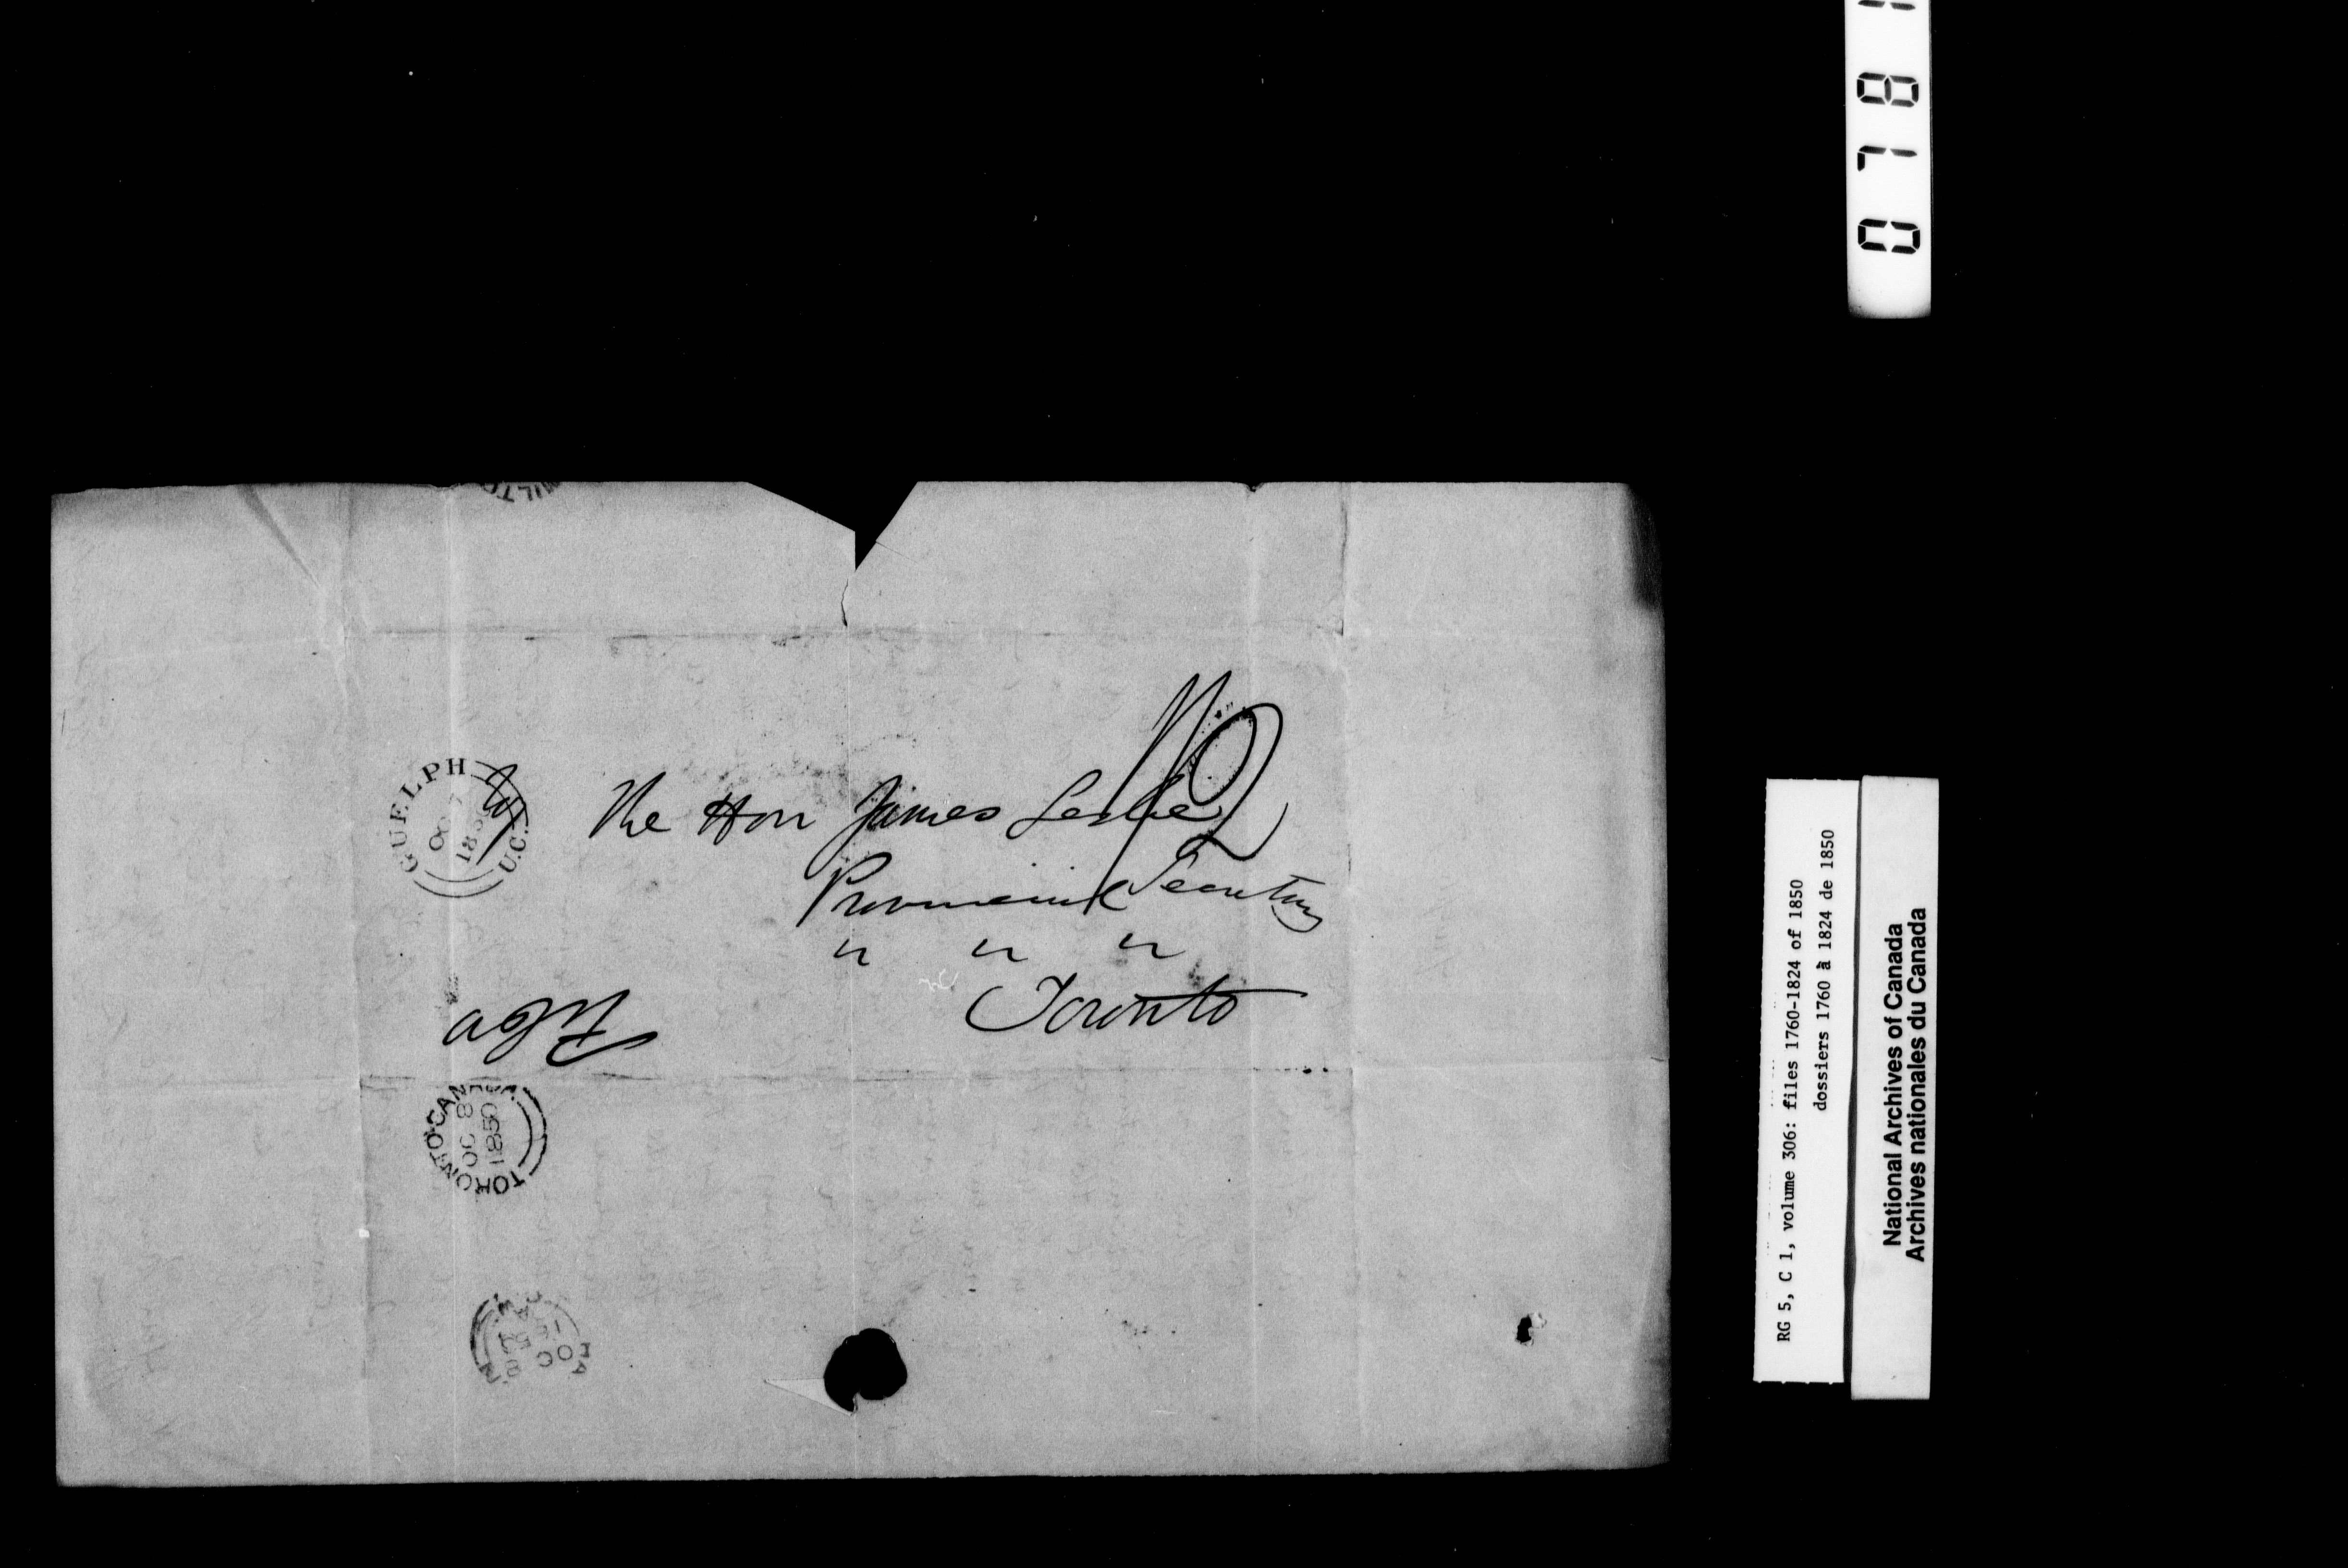 The Hon James Leslie
Provincial Secretary
" " "
Toronto
GUELPH
U.C.
OC
185
TORONTO·CANADA
OC 8
1850
MILTO
OC
RG 5, C 1, volume 306: files 1760-1824 of 1850
dossiers 1760 à 1824 de 1850
National Archives of Canada
Archives nationales du Canada
0 7 8